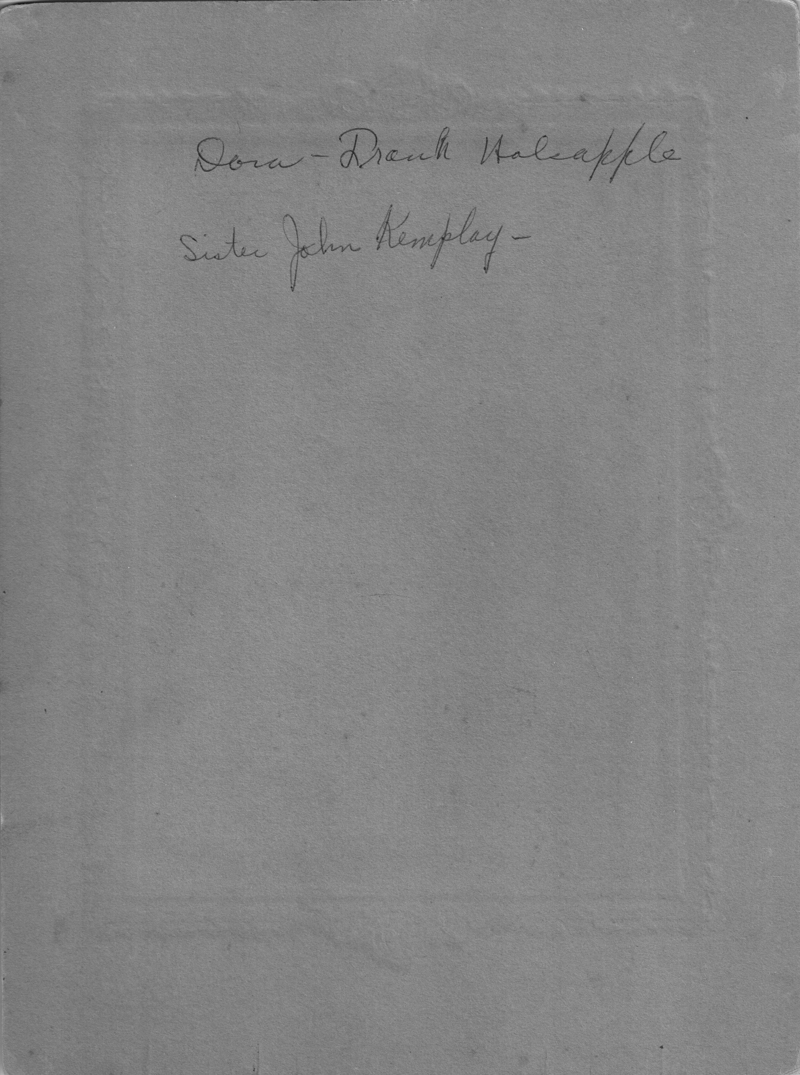 Dora - Frank Holsapple
Sister John Kemplay -